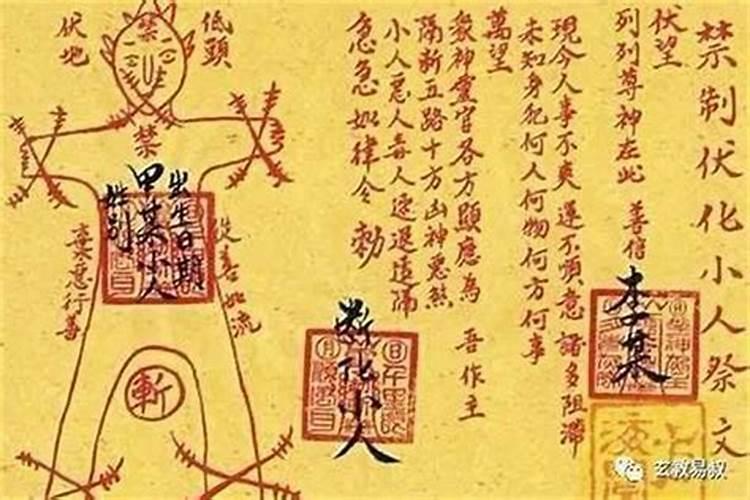 禁制伏化小人祭文
伏望
列列尊神在此 善信
李某
現今人事不爽 運不順意 諸多阻滯
未知身犯何人何物何方何事
萬望
眾神靈官各方顯應為 吾作主
隔斷五路十方凶神惡煞
小人惡人毒人速退遠隔
急急如律令 勅
斷化小人
低頭
伏地
禁
禁
出生日期
甲某小人
姓列
從善如流
棄惡行善
斬
玄教易叔